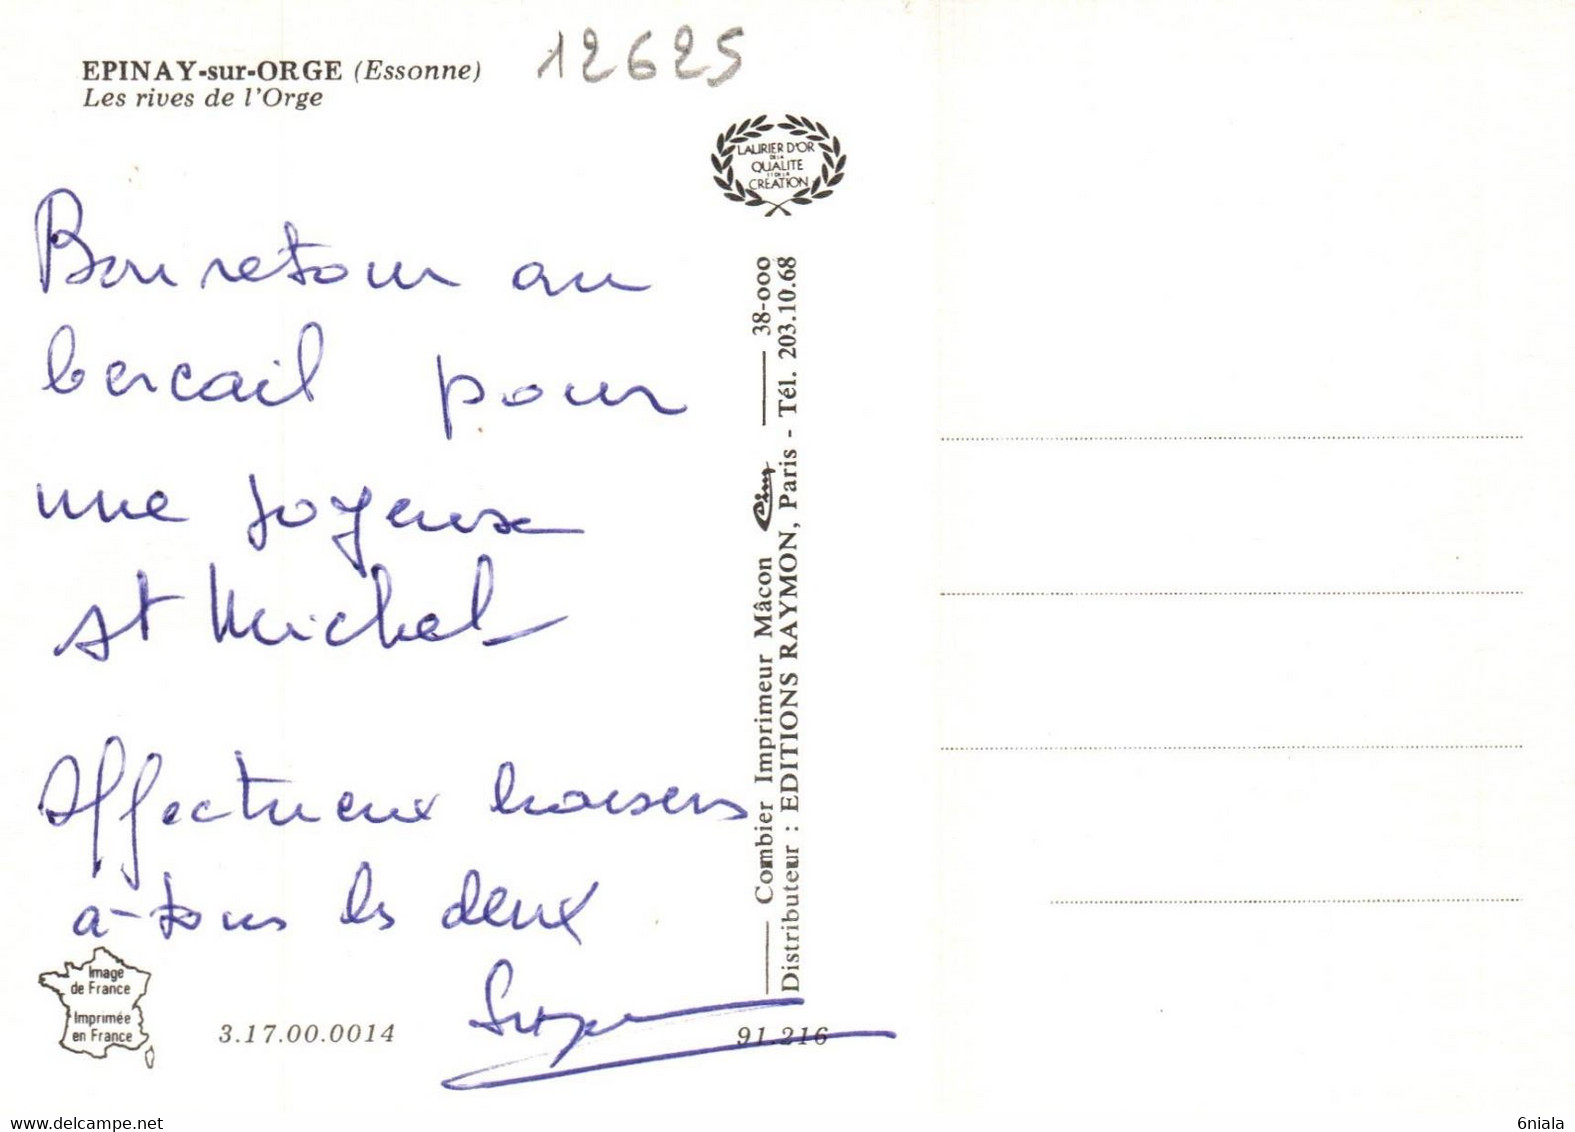 EPINAY-sur-ORGE (Essonne)
Les rives de l'Orge
12625
LAURIER D'OR
DE LA
QUALITE
ET DE LA
CRÉATION
Bon retour au
bercail pour
une joyeuse
St Michel
Affectueux baisers
à tous les deux
Combier Imprimeur Mâcon Cim 38-000
Distributeur : EDITIONS RAYMON, Paris - Tél. 203.10.68
Image
de France
Imprimée
en France
3.17.00.0014
91.216
6niala